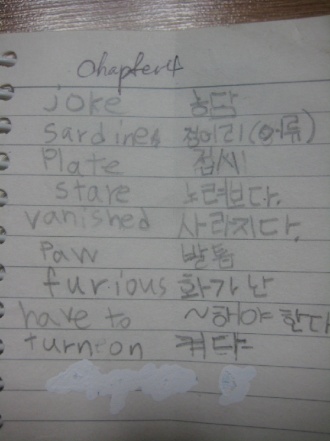 Chapter 4
joke 농담
sardines 정어리(어류)
Plate 접시
stare 노려보다.
vanished 사라지다.
paw 발톱
furious 화가 난
have to ~해야 한다
turn on 켜다